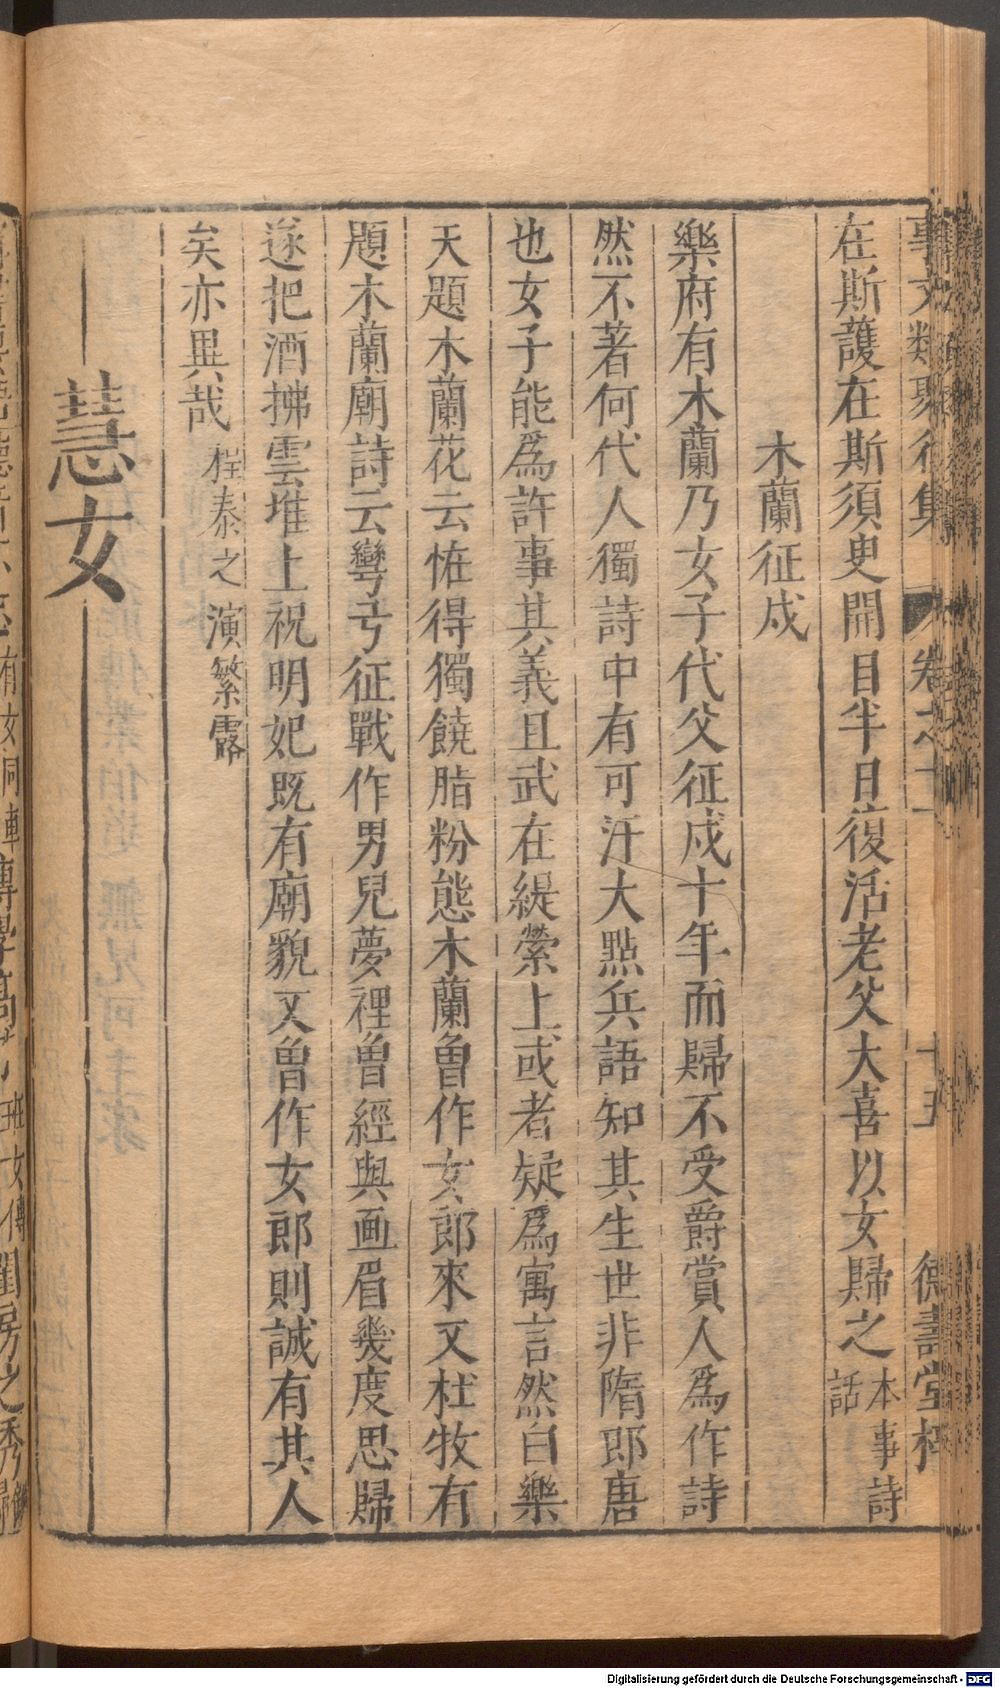 事文類聚後集 卷之十一 十五 德壽堂梓
在斯護在斯須臾開目半日復活老父大喜以女歸之本事詩話
木蘭征戍
樂府有木蘭乃女子代父征戍十年而歸不受爵賞人為作詩
然不著何代人獨詩中有可汗大點兵語知其生世非隋即唐
也女子能為許事其義且武在緹縈上或者疑為寓言然白樂
天題木蘭花云恠得獨饒脂粉態木蘭曾作女郎來又杜牧有
題木蘭廟詩云彎弓征戰作男兒夢裡曾經與画眉幾度思歸
遂把酒拂雲堆上祝明妃既有廟貌又曾作女郎則誠有其人
矣亦異哉程泰之演繁露
慧女
有女同車
班女傳
閨房之秀
Digitalisierung gefördert durch die Deutsche Forschungsgemeinschaft - DFG